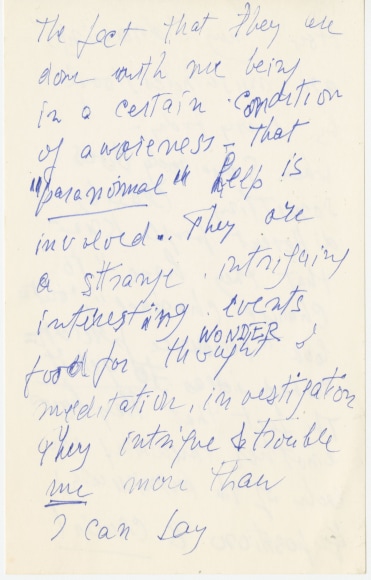 The fact that they are
done with me being
in a certain condition
of awareness - that
"paranormal" help is
involved.. They are
a strange. intriguing
interesting. events
WONDER
food for thought &
meditation, investigation
They intrigue & trouble
me more than
I can say